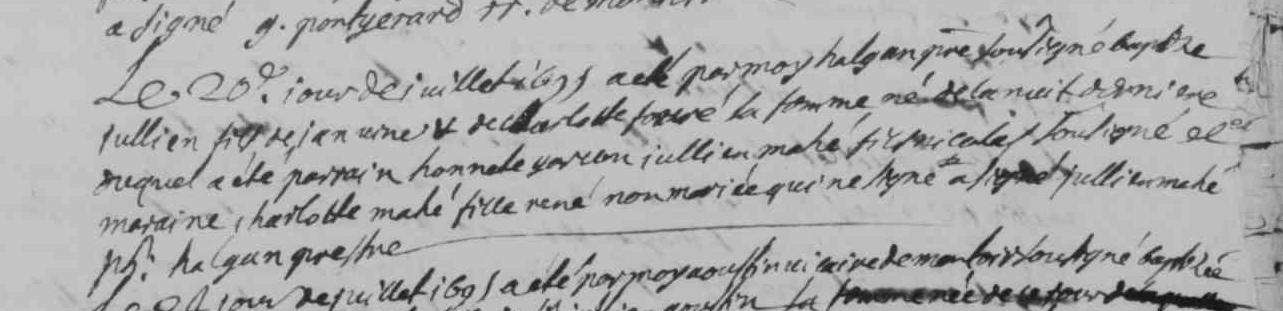 a signé g. pontgerard
Le 20e. jour de juillet 1695 a eté par moy halgan pre soussigné baptizé
jullien fils de jan vine & de charlotte forré sa femme né de la nuit derniere
duquel a eté parrain honnete garcon jullien mahé fils nicolas soussigné et
maraine charlotte mahé fille rené non mariée qui ne signe a signé jullien mahé
ph. halgan prestre
jour de juillet 1695 a eté par moy aoustin vicaire de montoir soussigné baptizée
sa femme née de ce jour